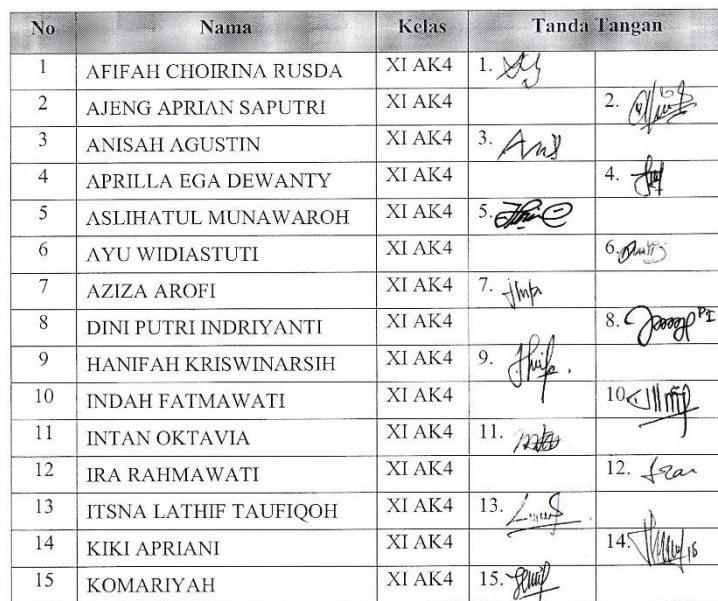 No Nama Kelas Tanda Tangan
1 AFIFAH CHOIRINA RUSDA XI AK4 1.
2 AJENG APRIAN SAPUTRI XI AK4 2.
3 ANISAH AGUSTIN XI AK4 3. Anis
4 APRILLA EGA DEWANTY XI AK4 4.
5 ASLIHATUL MUNAWAROH XI AK4 5.
6 AYU WIDIASTUTI XI AK4 6.
7 AZIZA AROFI XI AK4 7.
8 DINI PUTRI INDRIYANTI XI AK4 8.
9 HANIFAH KRISWINARSIH XI AK4 9.
10 INDAH FATMAWATI XI AK4 10.
11 INTAN OKTAVIA XI AK4 11.
12 IRA RAHMAWATI XI AK4 12.
13 ITSNA LATHIF TAUFIQOH XI AK4 13.
14 KIKI APRIANI XI AK4 14.
15 KOMARIYAH XI AK4 15.